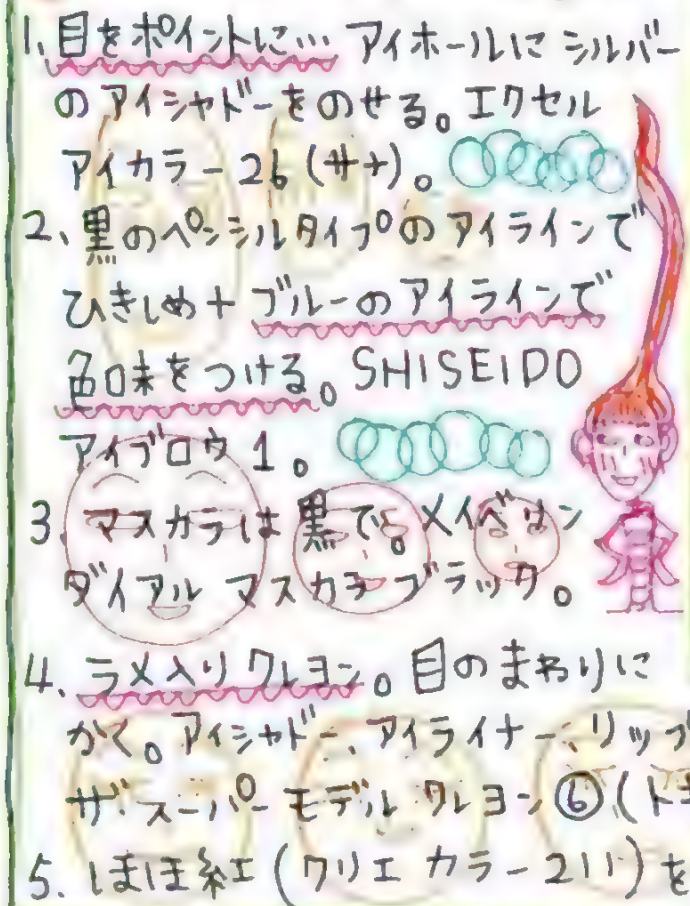 1、目をポイントに… アイホールにシルバー
のアイシャドーをのせる。エクセル
アイカラー26(サナ)。
2、黒のペンシルタイプのアイラインで
ひきしめ+ブルーのアイラインで
色味をつける。SHISEIDO
アイブロウ1。
3、マスカラは黒で。メイベリン
ダイアル マスカラ ブラック。
4、ラメ入りクレヨン。目のまわりに
かく。アイシャドー、アイライナー、リップ
ザ・スーパーモデル クレヨン⑥(トキ
5、ほほ紅(クリエ カラー211)を